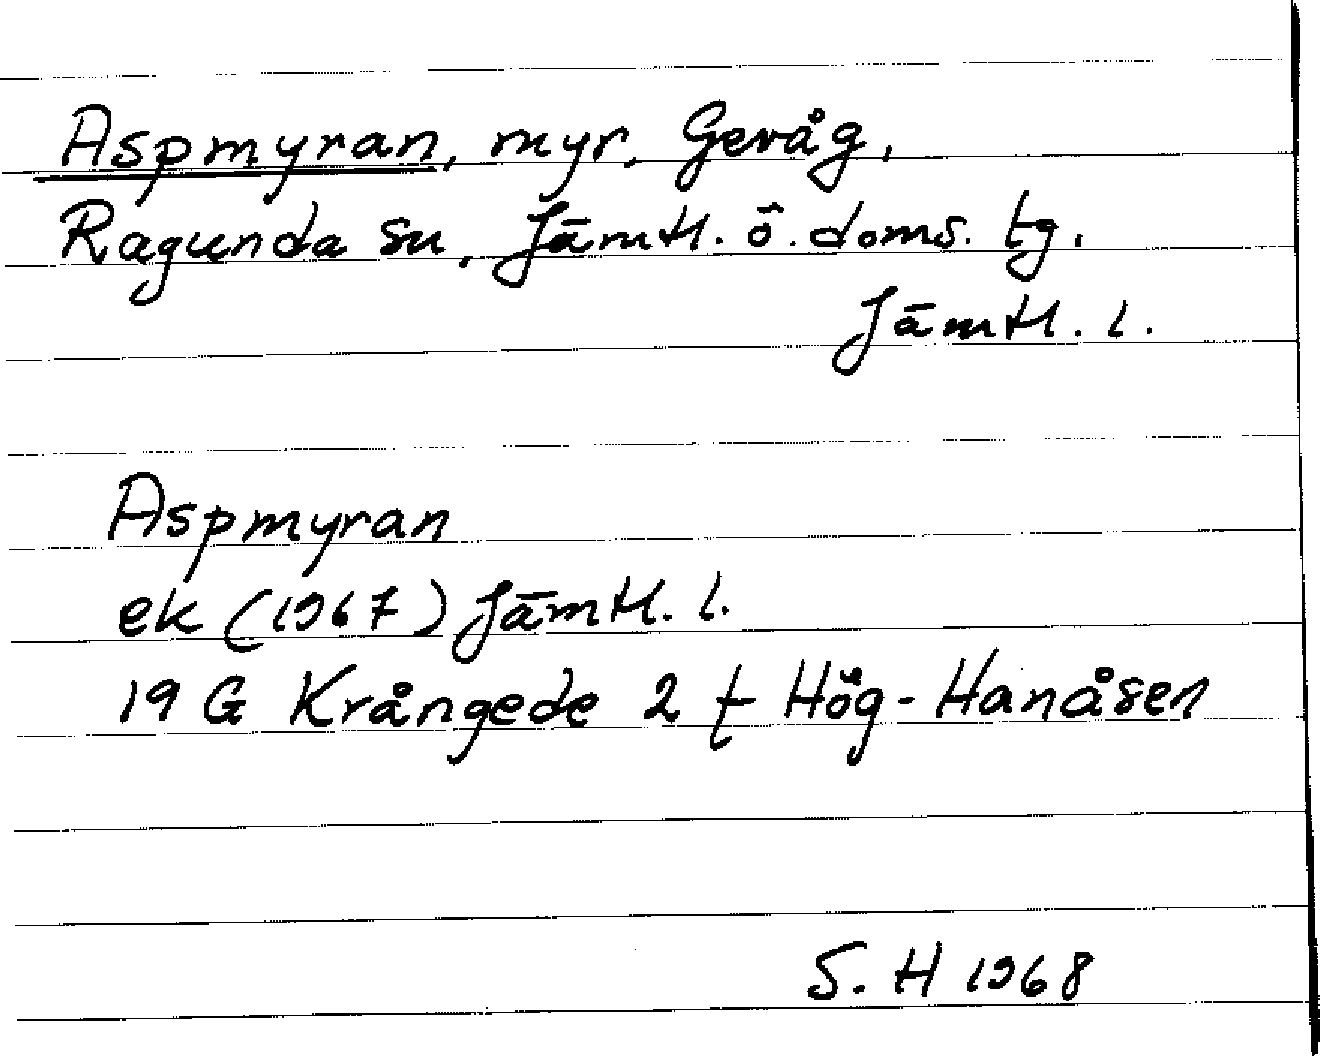 Aspmyran, myr, Gevåg,
Ragunda sn, Jämtl. ö. doms. tg.
Jämtl. l.
Aspmyran
ek (1967) Jämtl. l.
19 G Krångede 2 f Hög-Hanåsen
S. H 1968